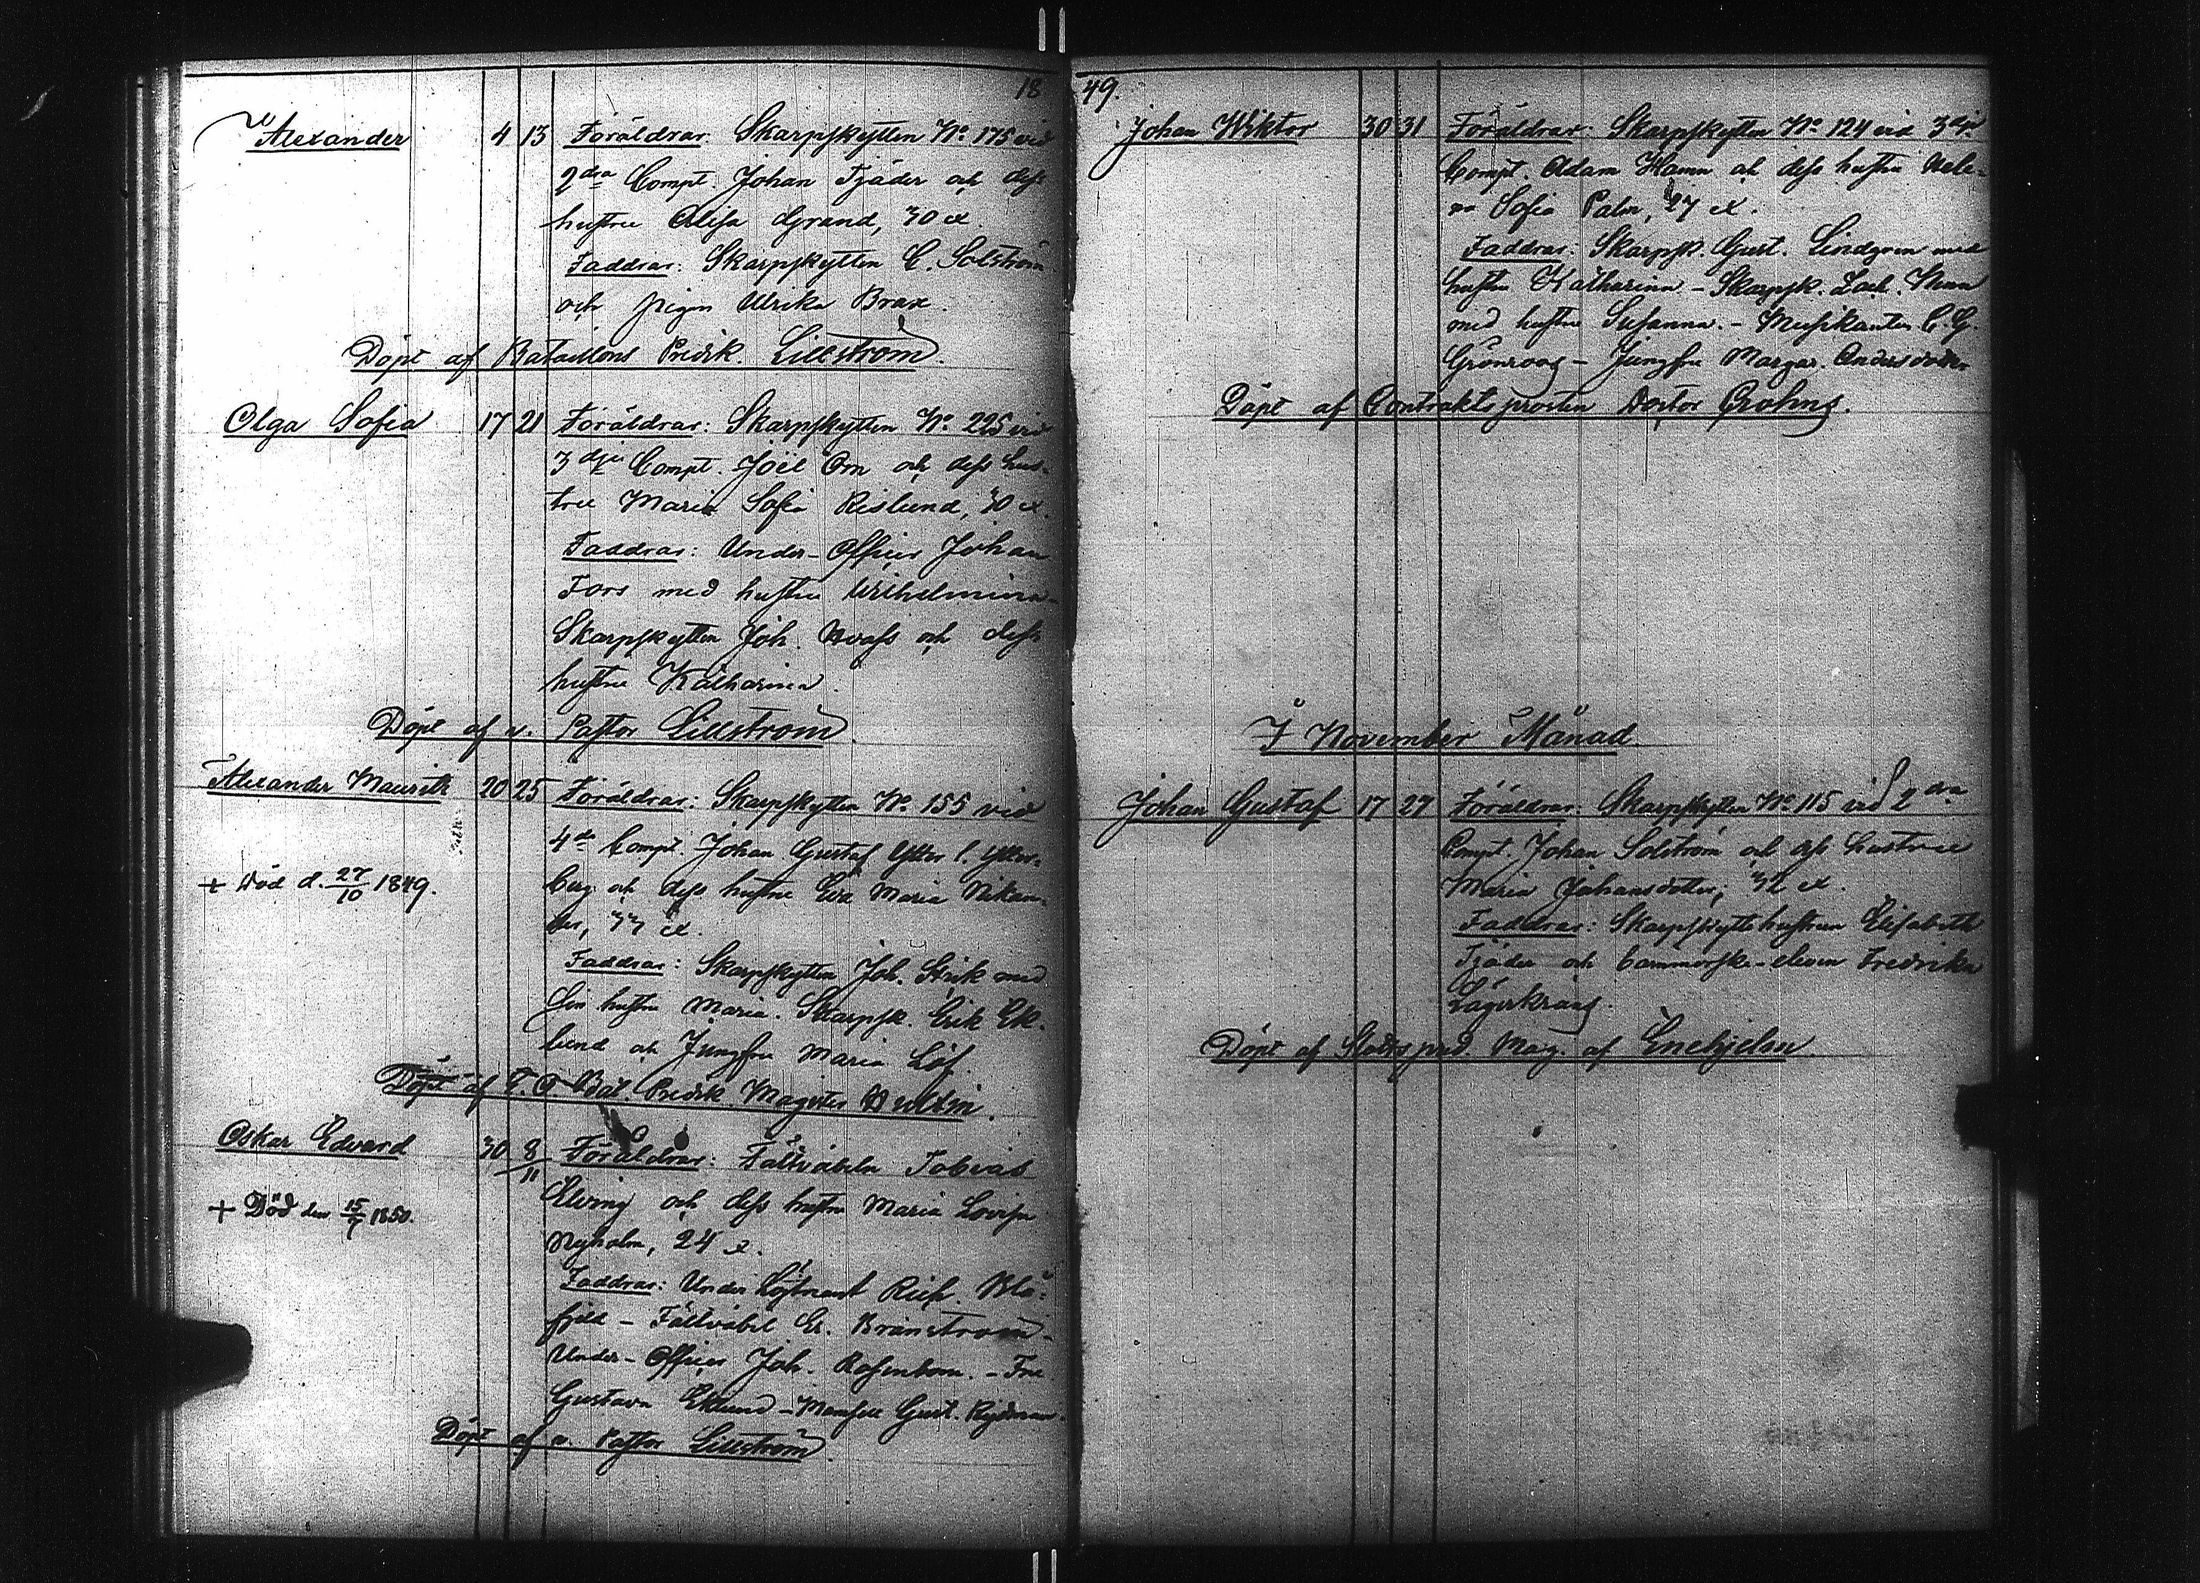 18
Alexander 4 13 Föräldrar: Skarpskytten No 175 vid
2dra Compt. Johan Tjäder och dess
hustru Elisa Grand, 30 år.
Faddrar: Skarpskytten C. Solström
och pigan Ulrika Brax.
Döpt af Bataillons Predik. Lillström.
Olga Sofia 17 21 Föräldrar: Skarpskytten No 225 vid
3dje Compt. Joël Orn och dess hus-
tru Maria Sofia Rislund, 30 år.
Faddrar: Under-Officer Johan
Fors med hustru Wilhelmina-
Skarpskytten Joh. och dess
hustru Katharina.
Döpt af v. Pastor Lillström.
Alexander Maurits 20 25 Föräldrar: Skarpskytten No 155 vid
4de Compt. Johan Gustaf Ytter l. Ytter-
berg och dess hustru Eva Maria Nikan-
der, 33 år.
+ Död d. 27/10 1849.
Faddrar: Skarpskytten Joh. med
sin hustru Maria. Skarpsk. Erik Ek-
lund och Jungfru Maria Löf.
Döpt af T. O. Bat. Predik. Magister
Oskar Edvard 30 8/11 Föräldrar: Fältväbeln Tobias
Elving och dess hustru Maria Lovisa
Nyholm, 24 år.
+ Död den 15/7 1850.
Faddrar: Under Löjtnant Rich. Blå-
fjeld - Fältväbel Er. Brånström-
Under-Officer Joh. Rosenbom. - Fru
Gustava Eklund - Mamsell Gust. Rydman.
Döpt af v. Pastor Lillström.
49.
Johan Wiktor 30 31 Föräldrar: Skarpskytten No 124 vid 3dje
Compt. Adam Hamn och dess hustru Hele-
na Sofia Palm, 27 år.
Faddrar: Skarpsk. Gust. Lindgren med
hustru Katharina - Skarpsk. Zach.
med hustru Susanna. - Musikanten C. G.
Grönroos - Jungfru Margar. Andersdotter
Döpt af Contraktsprosten Doctor Crohns.
I November Månad.
Johan Gustaf 17 27 Föräldrar: Skarpskytten No 115 vid 2dra
Compt. Johan Solström och dess hustru
Maria Johansdotter, 32 år.
Faddrar: Skarpskyttehustrun Elisabeth
Tjäder och barnmorske-eleven Fredrika
Lagerkrans.
Döpt af Slottspred. Mag. af Enehjelm.